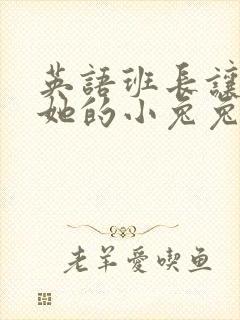 英語班長讓
她的小兔兔
老羊愛喫鱼